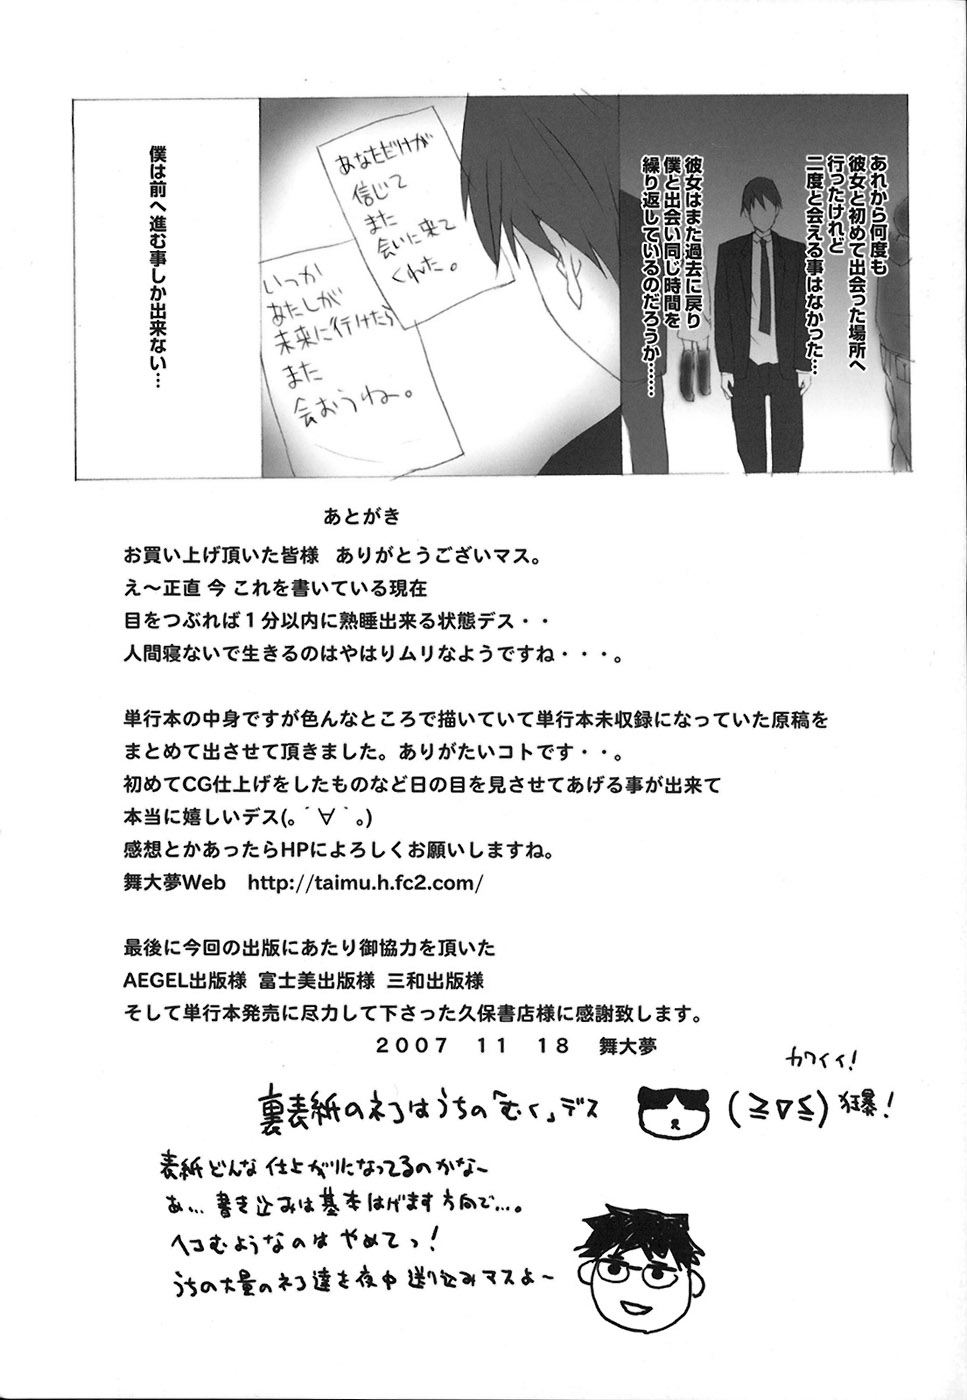 あれから何度も
彼女と初めて出会った場所へ
行ったけれど
二度と会える事はなかった…
彼女はまた過去に戻り
僕と出会い同じ時間を
繰り返しているのだろうか……
あなただけが
信じて
また
会いに来て
くれた。
いつか
あたしが
未来に行けたら
また
会おうね。
僕は前へ進む事しか出来ない…
あとがき
お買い上げ頂いた皆様　ありがとうございマス。
え～正直 今 これを書いている現在
目をつぶれば１分以内に熟睡出来る状態デス・・
人間寝ないで生きるのはやはりムリなようですね・・・。
単行本の中身ですが色んなところで描いていて単行本未収録になっていた原稿を
まとめて出させて頂きました。ありがたいコトです・・。
初めてCG仕上げをしたものなど日の目を見させてあげる事が出来て
本当に嬉しいデス(｡´∀｀｡)
感想とかあったらHPによろしくお願いしますね。
舞大夢Web　http://taimu.h.fc2.com/
最後に今回の出版にあたり御協力を頂いた
AEGEL出版様 富士美出版様 三和出版様
そして単行本発売に尽力して下さった久保書店様に感謝致します。
２００７　１１　１８　舞大夢
カワイイ!
裏表紙のネコはうちの「むく」デス
(≧∇≦)
狂暴!
表紙どんな仕上がりになってるのかなー
あ… 書き込みは基本はげます方向で…。
ヘコむようなのは やめてっ!
うちの大量のネコ達を夜中送り込みマスよ～